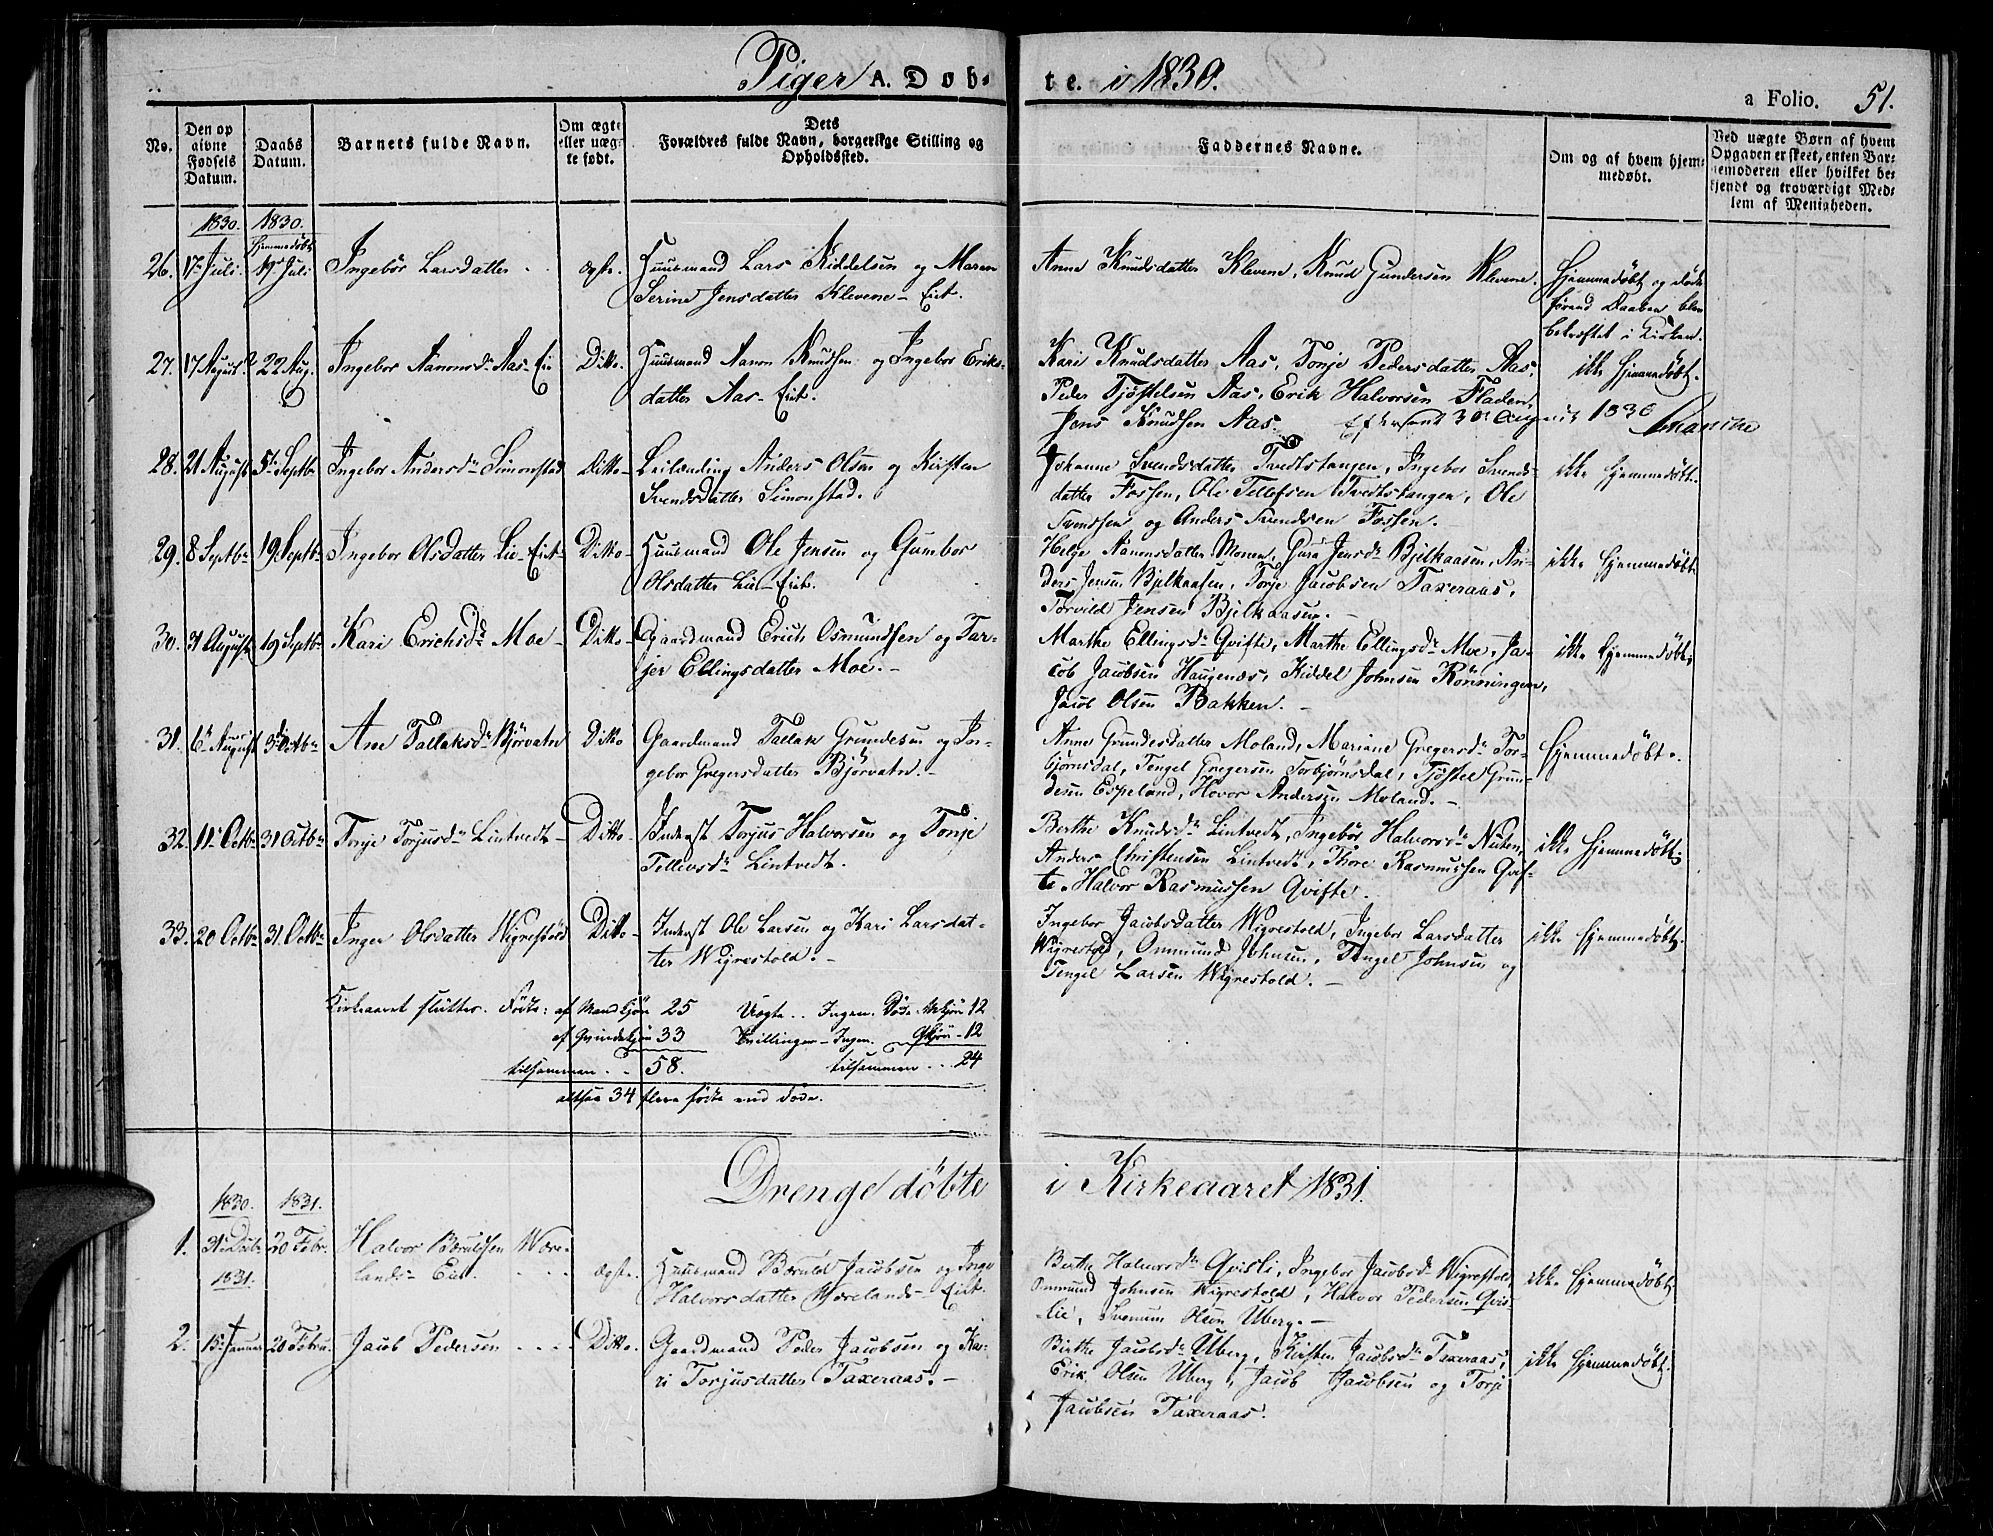 Piger A. Døb-
te. i 1830.
a Folio. 51.
No.
Den op
givne
Fødsels
Datum.
Daabs
Datum.
Barnets fulde Navn.
Om ægte
eller uæg-
te født.
Dets
Forældres fulde Navn, borgerlige Stilling og
Opholdssted.
Faddernes Navne.
Om og af hvem hjem-
medøbt.
Ved uægte Børn af hvem
Opgaven er skeet, enten Bar-
nemoderen eller hvilket be-
kjendt og troværdigt Med-
lem af Menigheden.
1830. 1830.
Hjemmedøbt
26. 17 Juli. 19 Juli Ingebor Larsdatter ægte. Huusmand Lars Kiddelsen og Maren
Serine Jensdatter Klevene - Eiet.
Anne Knudsdatter Klevene, Knud Gundersen Klevene.
Hjemmedøbt og døde
førend Daaben blev
bekræftet i Kirken.
27. 17 August 22 Aug. Ingebor Aanonsd. Aas-Eie Ditto. Huusmand Aanon Knudsen og Ingebor Eriks-
datter Aas- Eiet.
Kari Knudsdatter Aas, Torje Pedersdatter Aas,
Peder Tjøstelsen Aas, Erik Halvorsen Fladen,
Jens Knudsen Aas.
ikke Hjemmedøbt.
Efterseet 30 August 1830
28. 21 August 5 Septbr Ingebor Andersd. Simonstad Ditto- Leilænding Anders Olsen og Kirsten
Svendsdatter Simonstad.
Johanne Svendsdatter Tvedtstangen, Ingebor Svends-
datter Fossen, Ole Tellefsen Tvedtstangen, Ole
Svendsen og Anders Svendsen Fossen.-
ikke Hjemmedøbt.
29. 8 Septbr 19. Septbr Ingebor Olsdatter Lie-Eiet- Ditto- Huusmand Ole Jensen og Gumbor
Olsdatter Lie-Eiet.
Helje Aanonsdatter Monen, Guro Jensd. Bjelkaasen, An-
ders Jensen Bjelkaasen, Torje Jacobsen Taxeraas,
Torvild Jensen Bjelkaasen.-
ikke Hjemmedøbt
30. 31 August 19 Septbr Kari Erichsd. Moe- Ditto- Gaardmand Erich Osmundsen og Tar-
jer Ellingsdatter Moe.-
Marthe Ellingsd. Qvifte, Marthe Ellingsd. Moe, Ja-
cob Jacobsen Haugenæs, Kiddel Johnsen Rønningen,
Jacob Olsen Bakken.-
ikke Hjemmedøbt.
31. 6 August 3 Octbr Ane Tallaksd. Bjørvatn Ditto Gaardmand Tallak Grundesen og In-
gebor Gregersdatter Bjørvatn.-
Anne Grundesdatter Moland, Mariane Gregersd. Tor-
bjørnsdal, Tengel Gregersen Torbjørnsdal, Tjøstel Grun-
desen Espeland, Hovor Andersen Moland.-
Hjemmedøbt.
32. 11 Octbr 31 Octbr Torje Torjusd. Lintvedt- Ditto- Inderst Torjus Halvorsen og Torje
Tellevsd. Lintvedt.
Berthe Knudsd. Lintvedt, Ingebor Halvorsd. Nuten,
Anders Christensen Lintvedt, Thore Rasmussen Qvif-
te, Halvor Rasmussen Qvifte.
ikke Hjemmedøbt.
33. 20 Octbr 31. Octbr Inger Olsdatter Wigrestold Ditto- Inderst Ole Larsen og Kari Larsdat-
ter Wigrestold.-
Ingebor Jacobsdatter Wigrestold, Ingebor Larsdatter
Wigrestold, Onmund Johnsen, Tengel Johnsen og
Tengel Larsen Wigrestold.-
ikke Hjemmedøbt.
Kirkeaaret slutter. Fødte: af Mandkjøn 25 Uægte .. Ingen. Døde. Mkjøn 12
af Qvindekjøn 33 Tvillinger - Ingen. Qkjøn - 12
tilsammen .. 58. tilsammen ... 24
altsaa 34 flere fødte end døde.
Drenge døbte i Kirkeaaret 1831.
1830. 1831.
1. 31 Decbr 20 Febr. Halvor Bæruldsen Være-
1831. lands- Eiet. ægte. Huusmand Bæruld Jacobsen og Inge
Halvorsdatter Værelands- Eiet.
Berthe Halvorsd. Qvisli, Ingebor Jacobsd. Wigrestold,
Onmund Johnsen Wigrestold, Halvor Pedersen Qvis-
lie, Svenum Olsen Uberg.-
ikke Hjemmedøbt.
2. 15 Januar 20 Febru. Jacob Pedersen .... Ditto. Gaardmand Peder Jacobsen og Ka-
ri Torjusdatter Taxeraas.-
Birthe Jacobsd. Uberg, Kirsten Jacobsd. Taxeraas,
Erik Olsen Uberg, Jacob Jacobsen og Torje
Jacobsen Taxeraas.
ikke Hjemmedøbt.